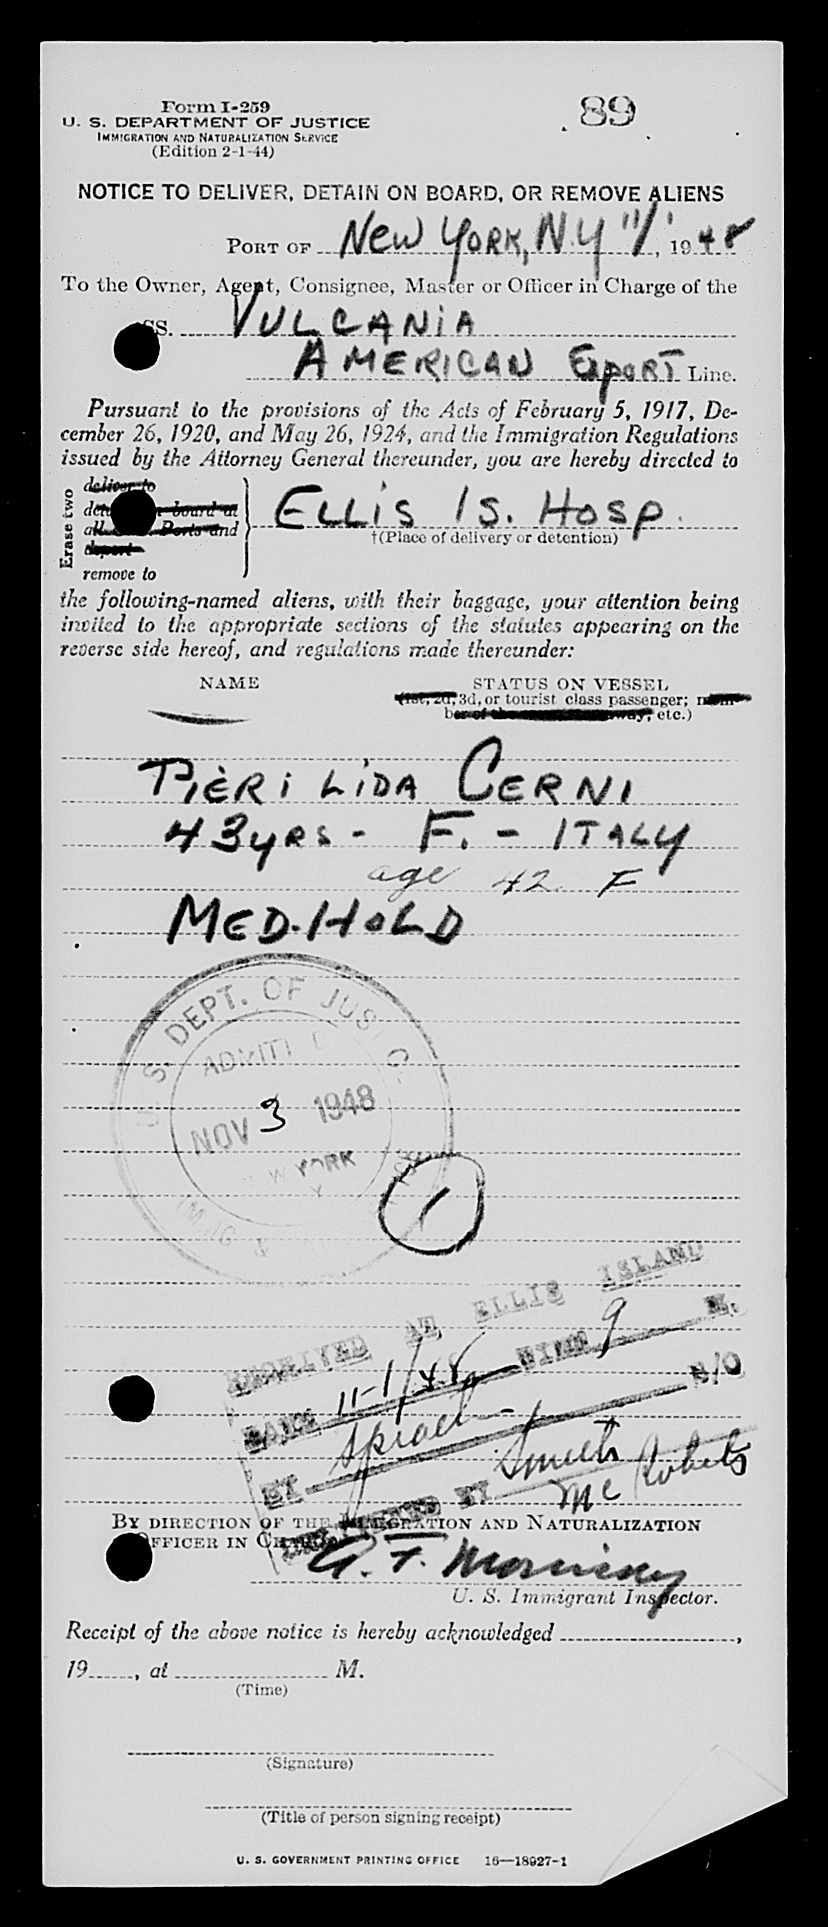 Form I-259
89
U. S. DEPARTMENT OF JUSTICE
IMMIGRATION AND NATURALIZATION SERVICE
(Edition 2-1-44)
NOTICE TO DELIVER, DETAIN ON BOARD, OR REMOVE ALIENS
PORT OF New York, N.Y 11/1, 1948
To the Owner, Agent, Consignee, Master or Officer in Charge of the
SS. VULCANIA
AMERICAN Export Line.
Pursuant to the provisions of the Acts of February 5, 1917, De-
cember 26, 1920, and May 26, 1924, and the Immigration Regulations
issued by the Attorney General thereunder, you are hereby directed to
Erase two
deliver to
board at
Ports and
deport
remove to
ELLIS IS. HOSP.
†(Place of delivery or detention)
the following-named aliens, with their baggage, your attention being
invited to the appropriate sections of the statutes appearing on the
reverse side hereof, and regulations made thereunder:
NAME STATUS ON VESSEL
(1st, 2d, 3d, or tourist class passenger; mem-
ber of the etc.)
PIERI LIDA CERNI
43 YRS - F. - ITALY
age 42 F
MED. HOLD
U. S. DEPT. OF JUSTICE
ADMITTED
NOV 3 1948
NEW YORK
IMMIG &
1
RECEIVED AT ELLIS ISLAND
DATE 11-1/48 TIME 9 M.
BY N/O
BY Smith
Mc Roberts
BY DIRECTION OF THE IMMIGRATION AND NATURALIZATION
OFFICER IN CHARGE
U. S. Immigrant Inspector.
Receipt of the above notice is hereby acknowledged ,
19 , at M.
(Time)
(Signature)
(Title of person signing receipt)
U. S. GOVERNMENT PRINTING OFFICE 16—18927-1